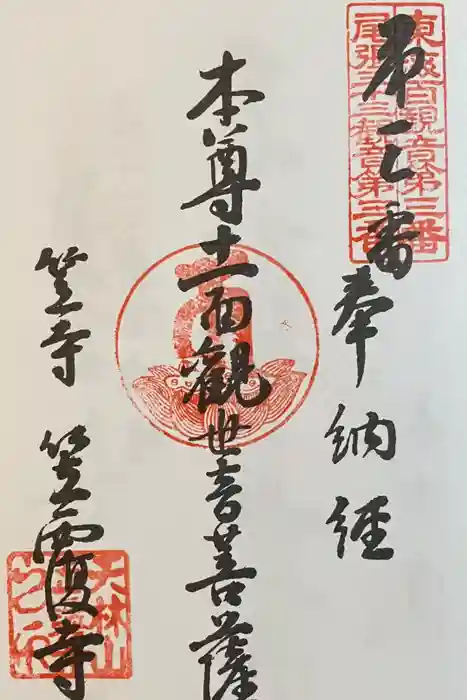 東海百観音第三番
尾張三十三観音第三番
第三番
奉納経
本尊十一面觀世音菩薩
笠寺 笠覆寺
天林山